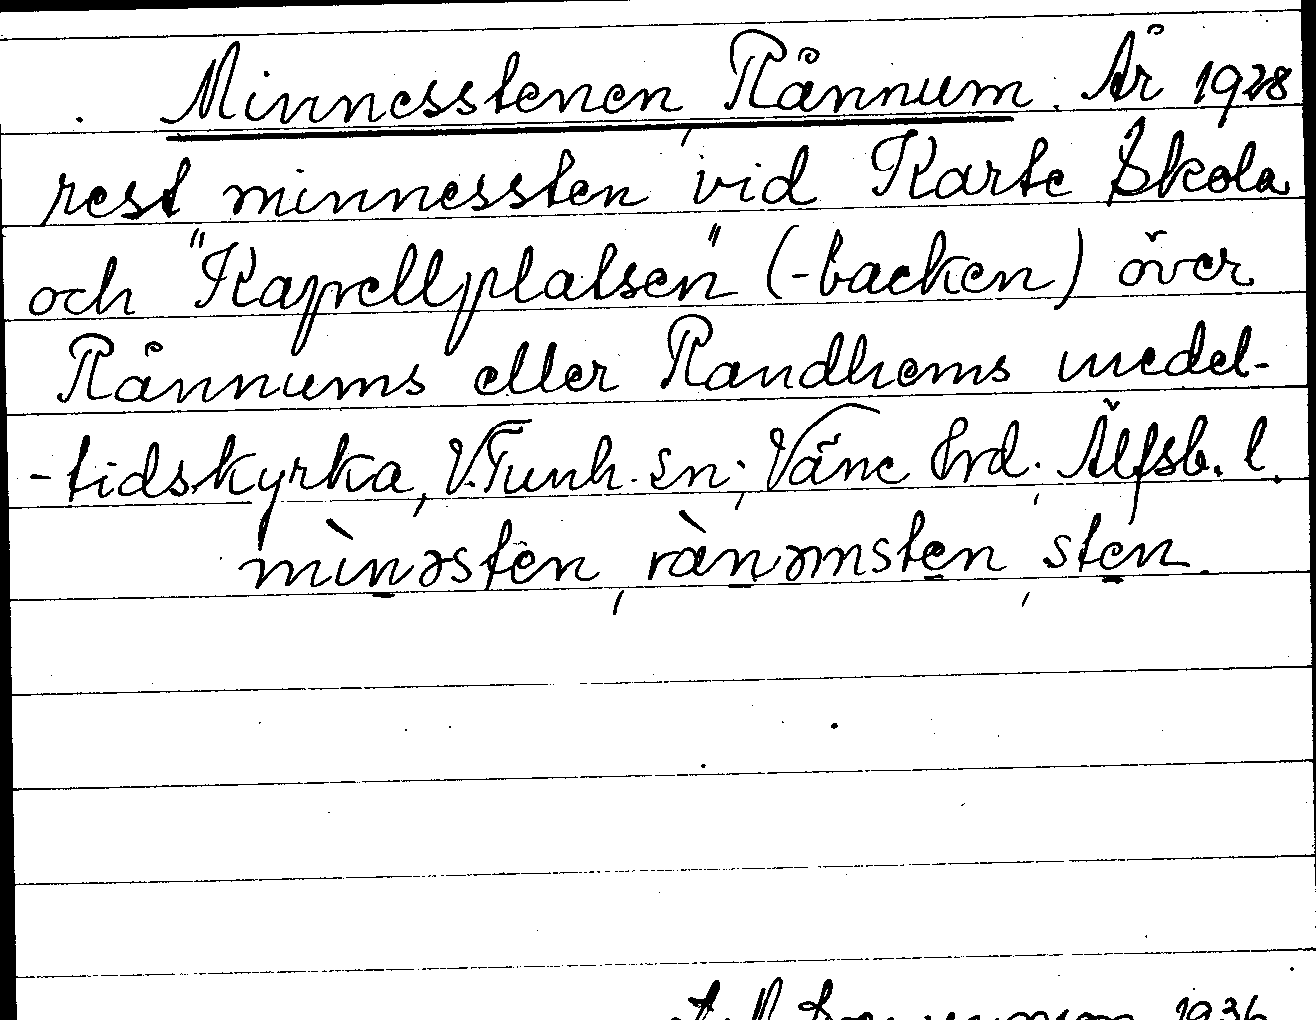 Minnesstenen, Rånnum. År 1928
rest minnessten vid Karte Skola
och "Kapellplatsen" (-backen) över
Rånnums eller Randhems medel-
-tidskyrka, V.Tunh. sn; Väne Hrd. Älfsb. l.
mìnəsten, rànəmsten, sten.
1936